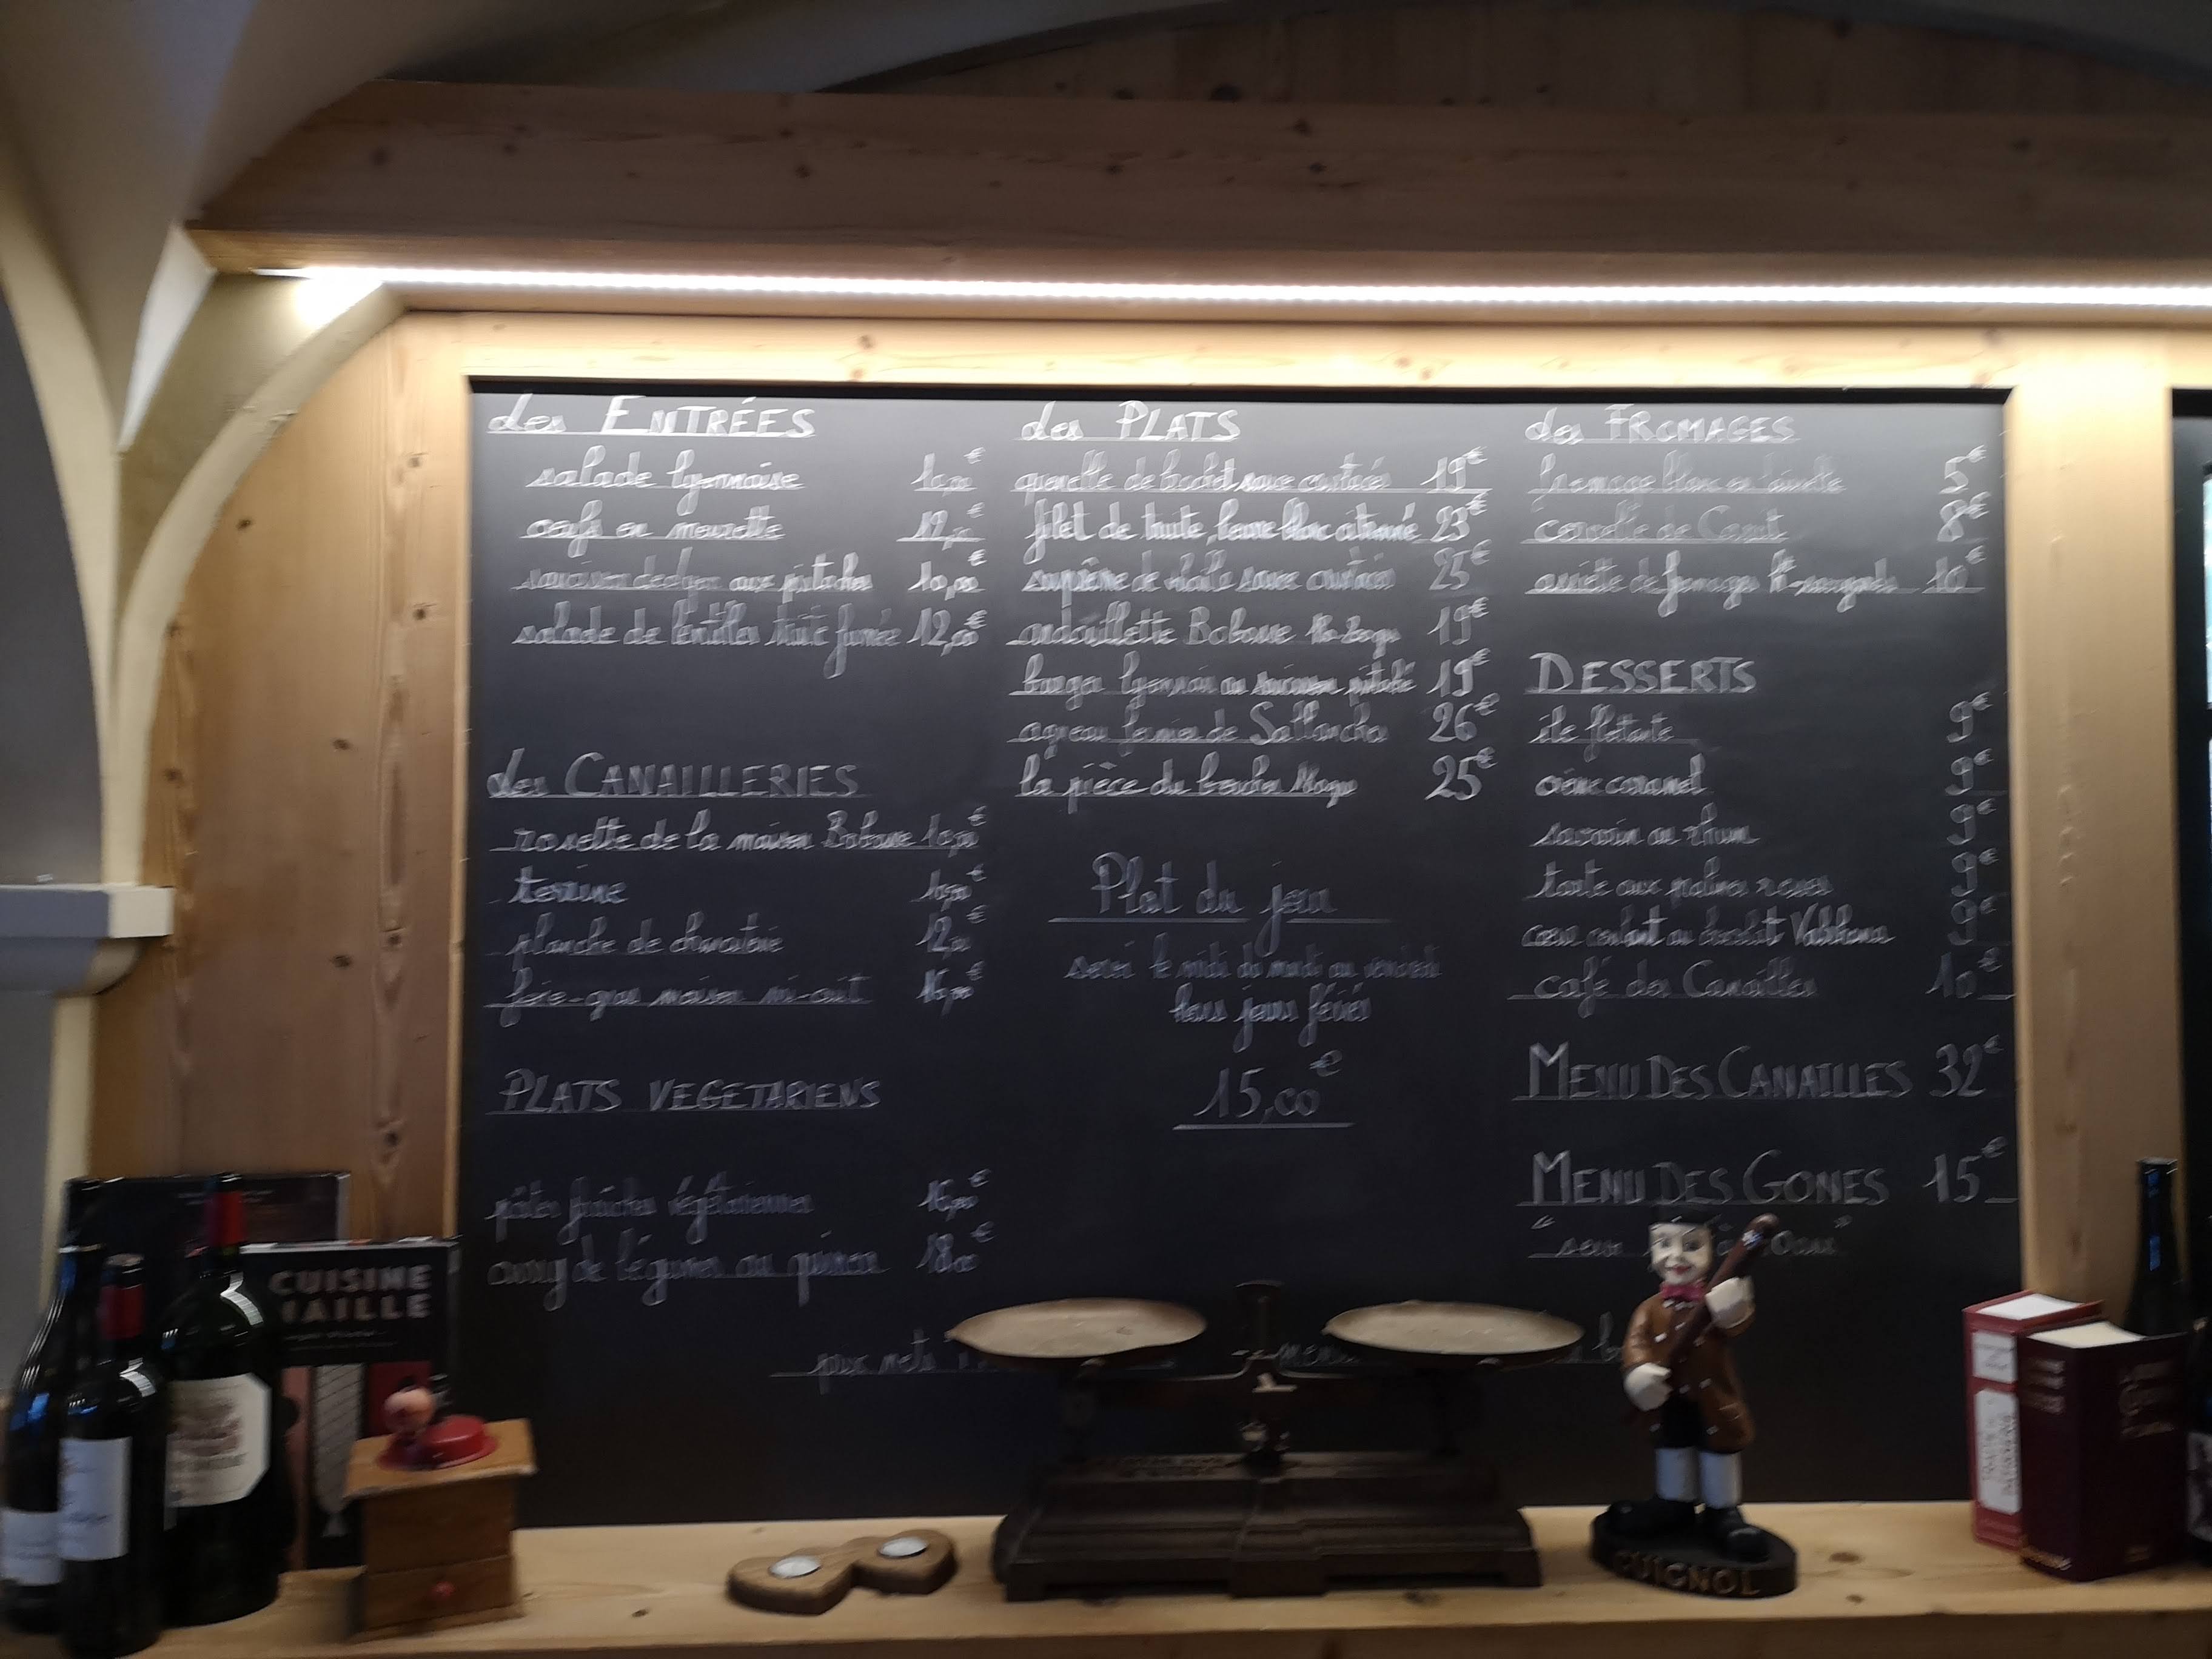 des ENTRÉES
salade lyonnaise 10,00€
oeufs en meurette 12,00€
saucisson de Lyon aux pistaches 10,00€
salade de lentilles truite fumée 12,00€
des CANAILLERIES
rosette de la maison Bobosse 10,00€
terrine 10,00€
planche de charcuterie 12,00€
foie-gras maison mi-cuit 16,00€
PLATS VEGETARIENS
pâtes fraîches végétariennes 16,00€
curry de légumes au quinoa 18,00€
des PLATS
quenelle de brochet sauce crustacés 19€
filet de truite, beurre blanc citronné 23€
suprême de volaille sauce 25€
andouillette Bobosse 19€
burger lyonnais au saucisson pistaché 19€
agneau fermier de Sallanches 26€
la pièce du boucher 25€
Plat du jour
servi le midi du mardi au vendredi
hors jours fériés
15,00€
des FROMAGES
fromage blanc en faisselle 5€
cervelle de Canut 8€
assiette de fromages 10€
DESSERTS
île flottante 9€
crème caramel 9€
savarin au rhum 9€
tarte aux pralines roses 9€
coeur coulant au chocolat Valrhona 9€
café des Canailles 10€
MENU DES CANAILLES 32€
MENU DES GONES 15€
prix nets
CUISINE
GUIGNOL